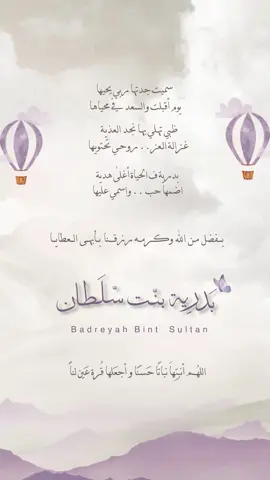 سميت جدتها ربي يحييها
يوم أقبلت والسعد في محياها
ظبي تهلي بها نجد العذية
غزالة العنز.. روحي تحتويها
بدرية ف الحياة أغلى هدية
اضمها حب .. واسمي عليها
بفضل من الله وكرمه رزقنا بأبهى العطايا
بَدرية بنْت سُلطان
Badreyah Bint Sultan
اللهُم أنبتِهَا نباتًا حَسَنًا وأجعَلها قُرة عَين لناً